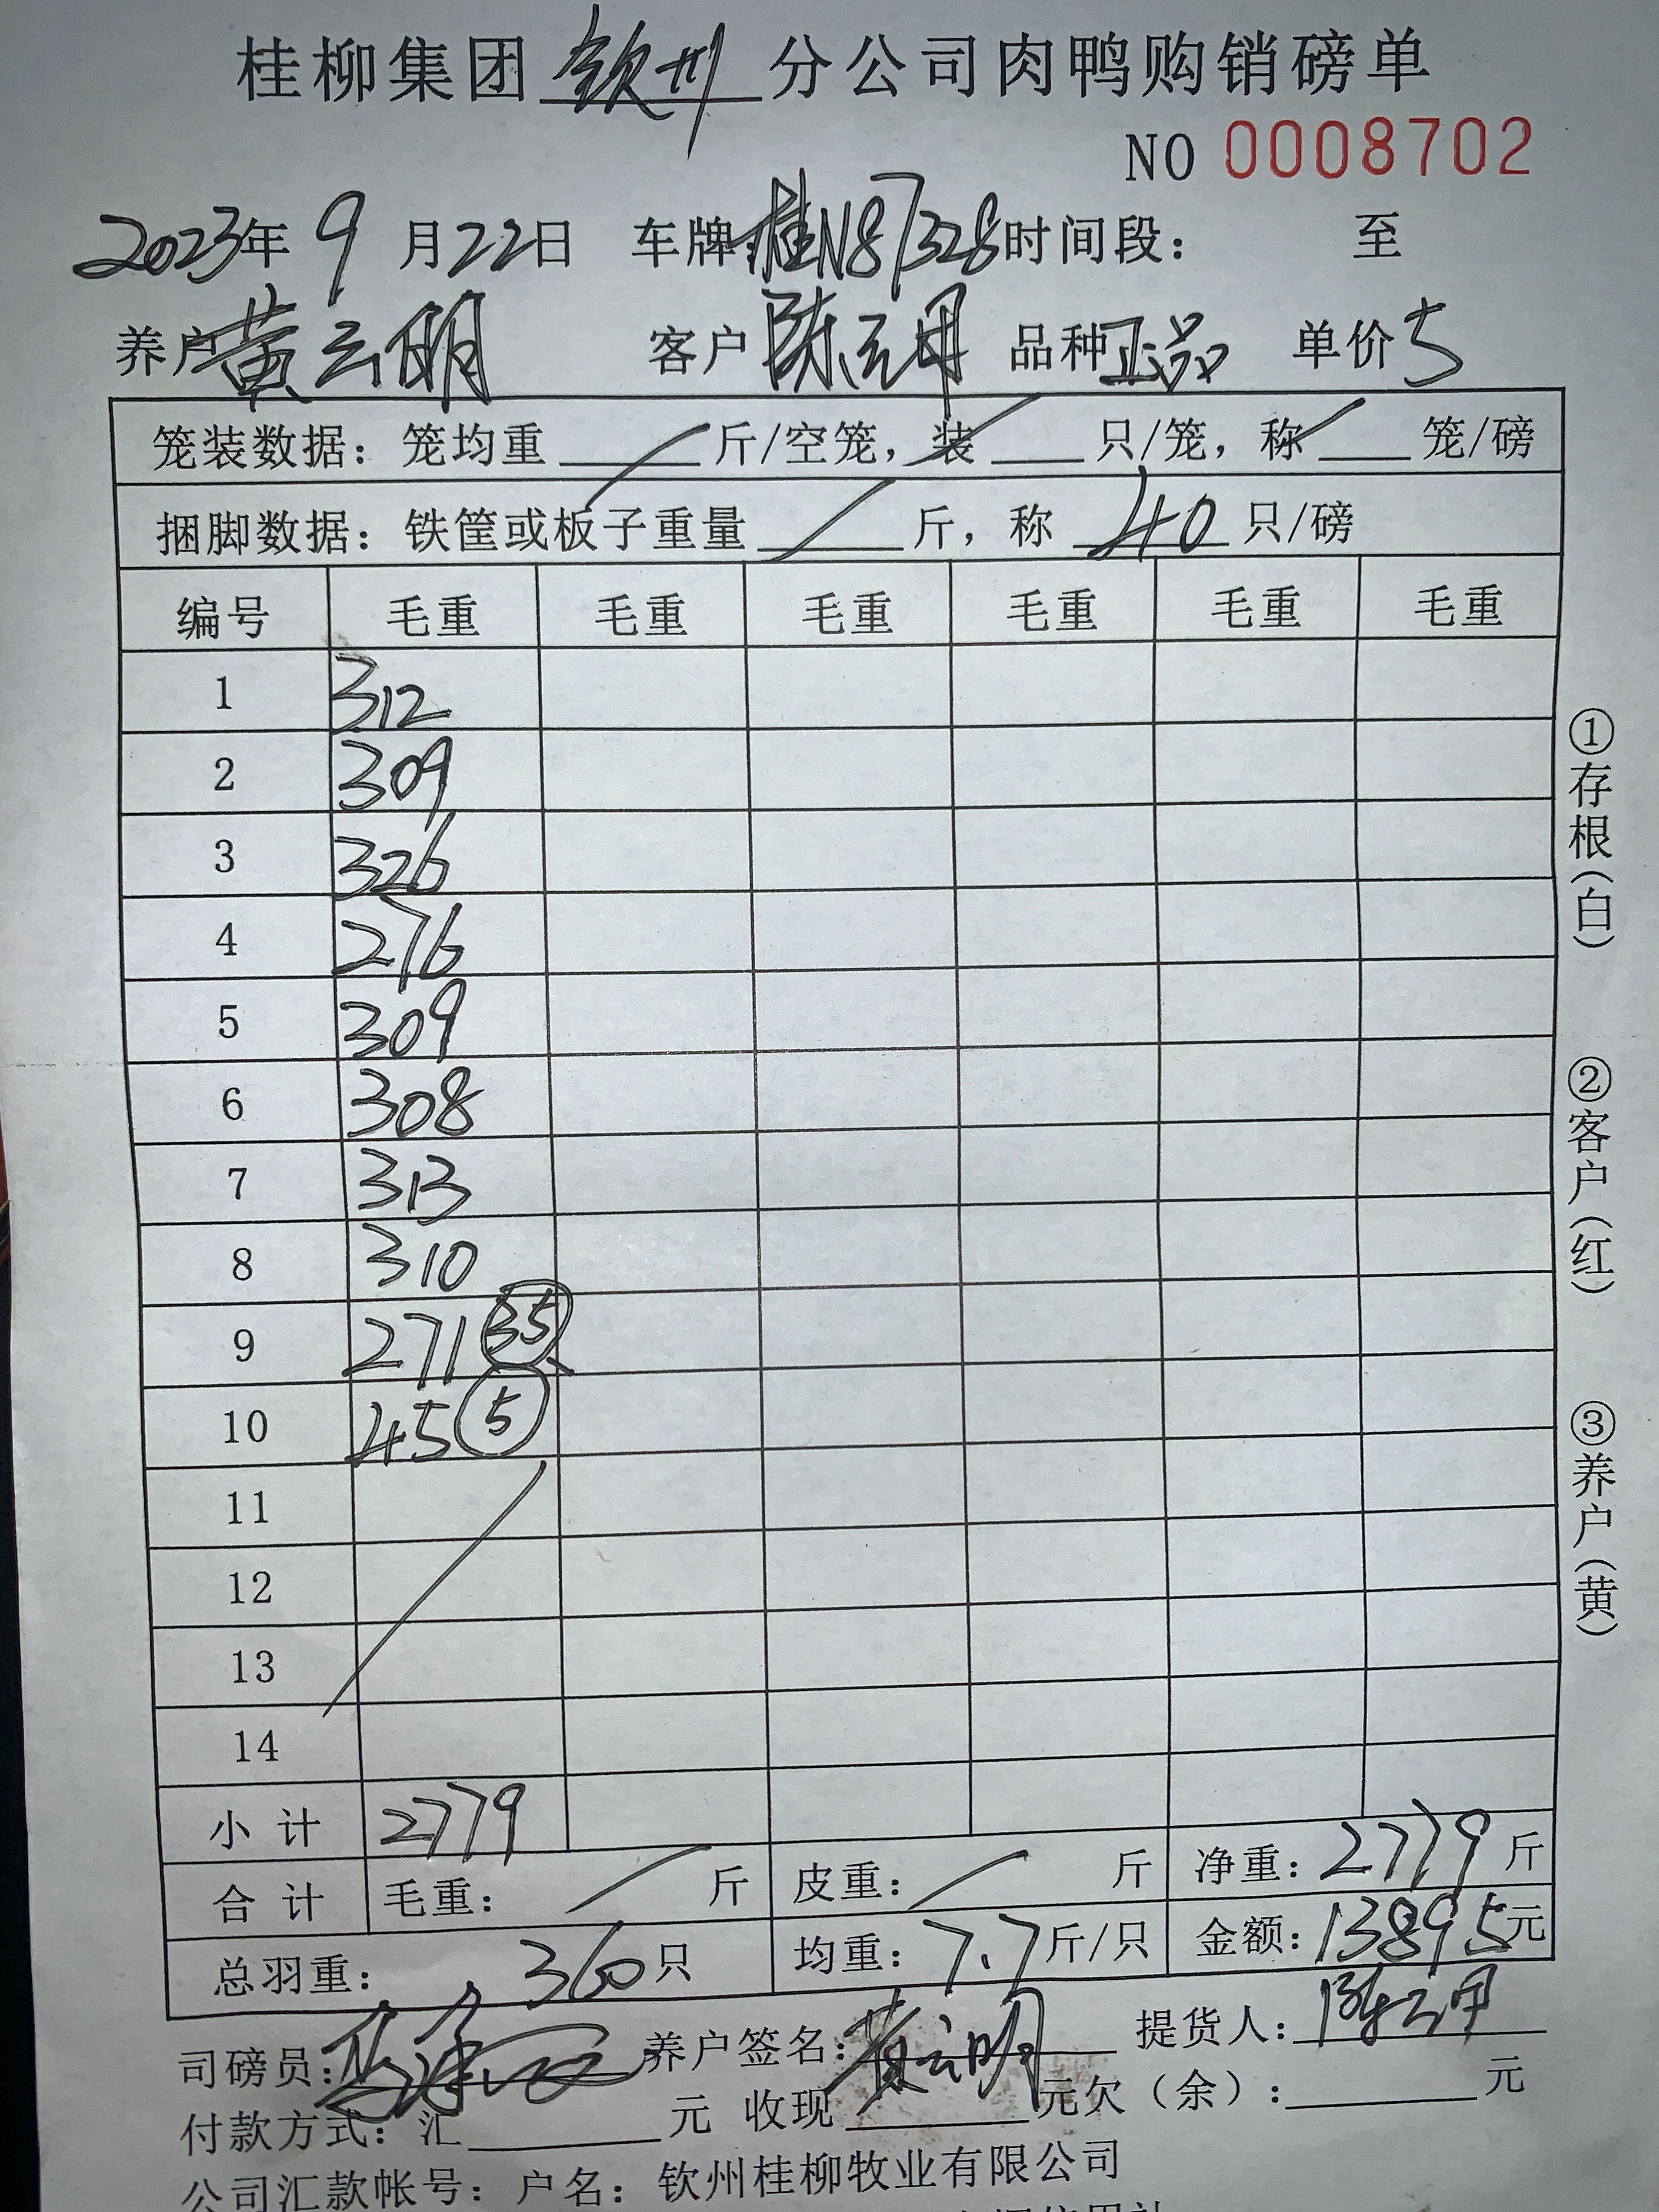 桂柳集团 钦州 分公司肉鸭购销磅单
NO 0008702
2023年 9 月22日 车牌:桂N87328时间段: 至
养户 黄云明 客户 陈云甲 品种 正品 单价 5
笼装数据: 笼均重 / 斤/空笼, 装 / 只/笼, 称 / 笼/磅
捆脚数据: 铁筐或板子重量 / 斤, 称 40 只/磅
编号 毛重 毛重 毛重 毛重 毛重 毛重
1 312
2 309
3 326
4 276
5 309
6 308
7 313
8 310
9 271 35
10 45 5
11
12
13
14
小计 2779
合计 毛重: / 斤 皮重: / 斤 净重: 2779 斤
总羽重: 360 只 均重: 7.7 斤/只 金额: 13895元
司磅员: 养户签名: 黄云明 提货人: 陈云甲
付款方式: 汇 元 收现 元欠(余): 元
公司汇款帐号: 户名: 钦州桂柳牧业有限公司
①存根(白)
②客户(红)
③养户(黄)